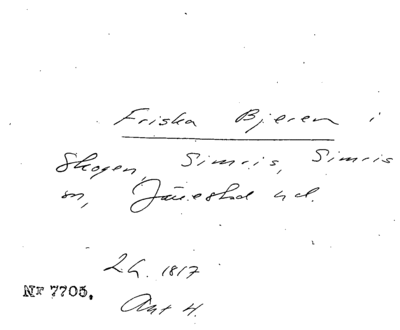 Friska Bjeren i
Skogen, Simris, Simris
sn, Järrestad hd.
2 h. 1817
Nr 7705.
Akt 4.